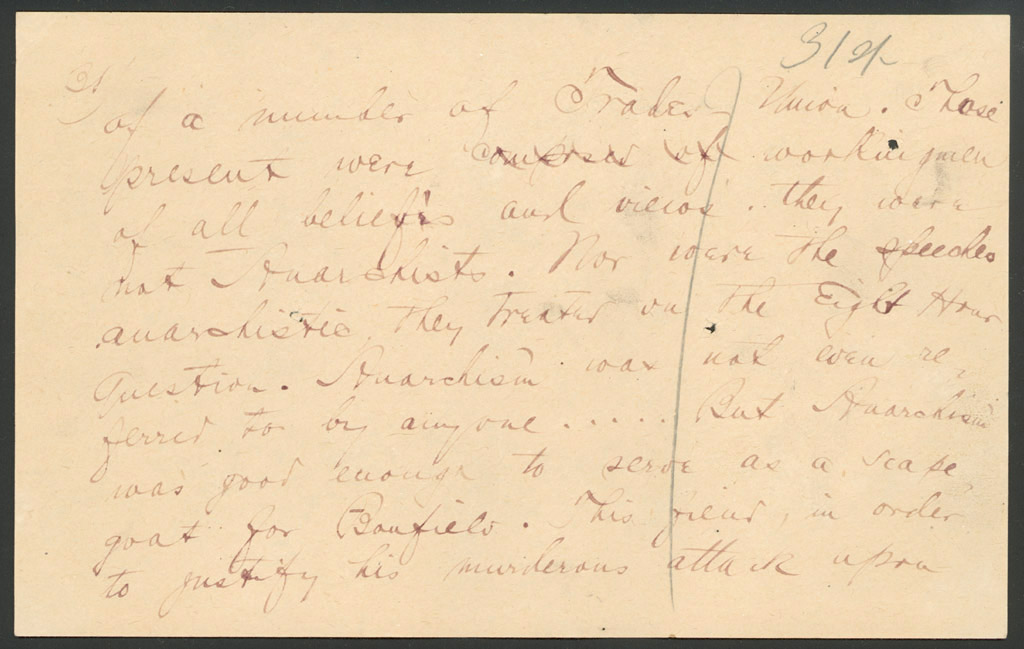 31
of a number of Trades Union. Those
present were composed of workingmen
of all beliefs and views. they were
not Anarchists. Nor were the speeches
anarchistic, they treated on the Eight Hour
Question. Anarchism was not even re
ferred to by anyone ..... But Anarchism
was good enough to serve as a scape
goat for Bonfield. This fiend, in order
to justify his murderous attack upon